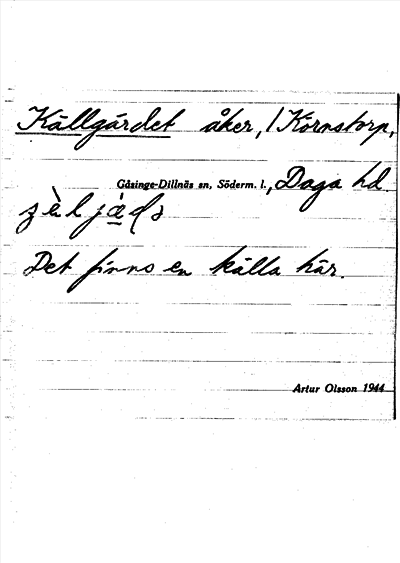 Källgärdet åker, / Kornstorp,
Gåsinge-Dillnäs sn, Söderm. l., Daga hd
Det finns en källa här.
Artur Olsson 1944